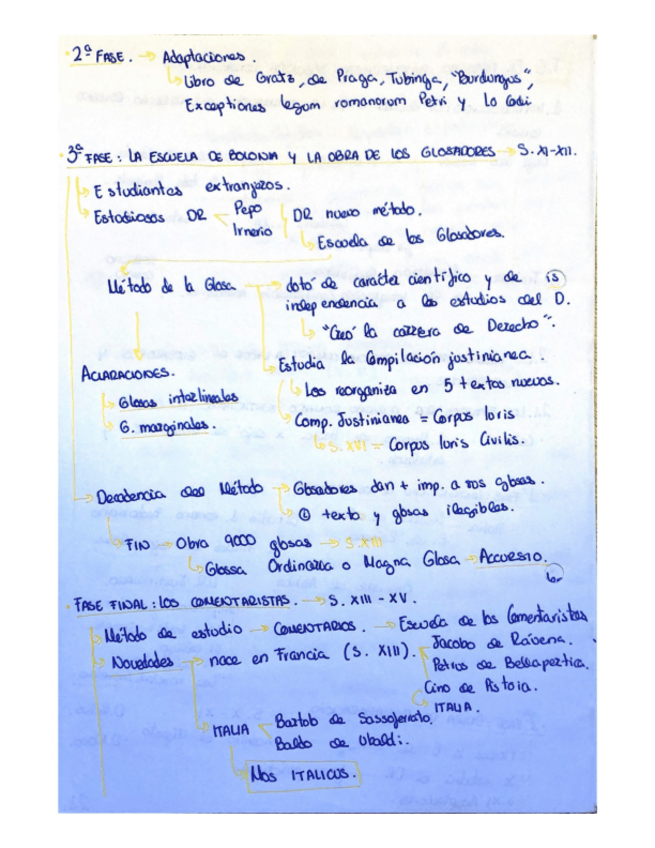 · 2ª FASE. → Adaptaciones.
Libro de Gratz, de Praga, Tubinga, "Burdungus",
Exceptiones legum romanorum Petri y Lo Codi
· 3ª FASE: LA ESCUELA DE BOLONIA Y LA OBRA DE LOS GLOSADORES → S. XI-XII.
Estudiantes extranjeros.
Estudiosos DR Pepo Irnerio DR nuevo método.
Escuela de los Glosadores.
Método de la Glosa → dotó de carácter científico y de
independencia a los estudios del D.
"Creó" la carrera de Derecho".
Estudia la Compilación justinianea.
Los reorganiza en 5 textos nuevos.
ACLARACIONES.
Glosas interlineales
G. marginales.
Comp. Justinianea = Corpus Iuris
S. XVI = Corpus Iuris Civilis.
Decadencia del Método → Glosadores dan + imp. a sus glosas.
texto y glosas ilegibles.
FIN → Obra 9000 glosas → S. XIII
Glossa Ordinaria o Magna Glosa → ACCURSIO.
· FASE FINAL: LOS COMENTARISTAS. → S. XIII - XV.
Método de estudio → COMENTARIOS. → Escuela de los Comentaristas
Novedades → nace en Francia (S. XIII). Jacobo de Raivena.
Petrus de Bellapertica.
Cino de Pistoia.
ITALIA.
ITALIA Bartolo de Sassoferrato.
Baldo de Ubaldi.
Mos ITALICUS.